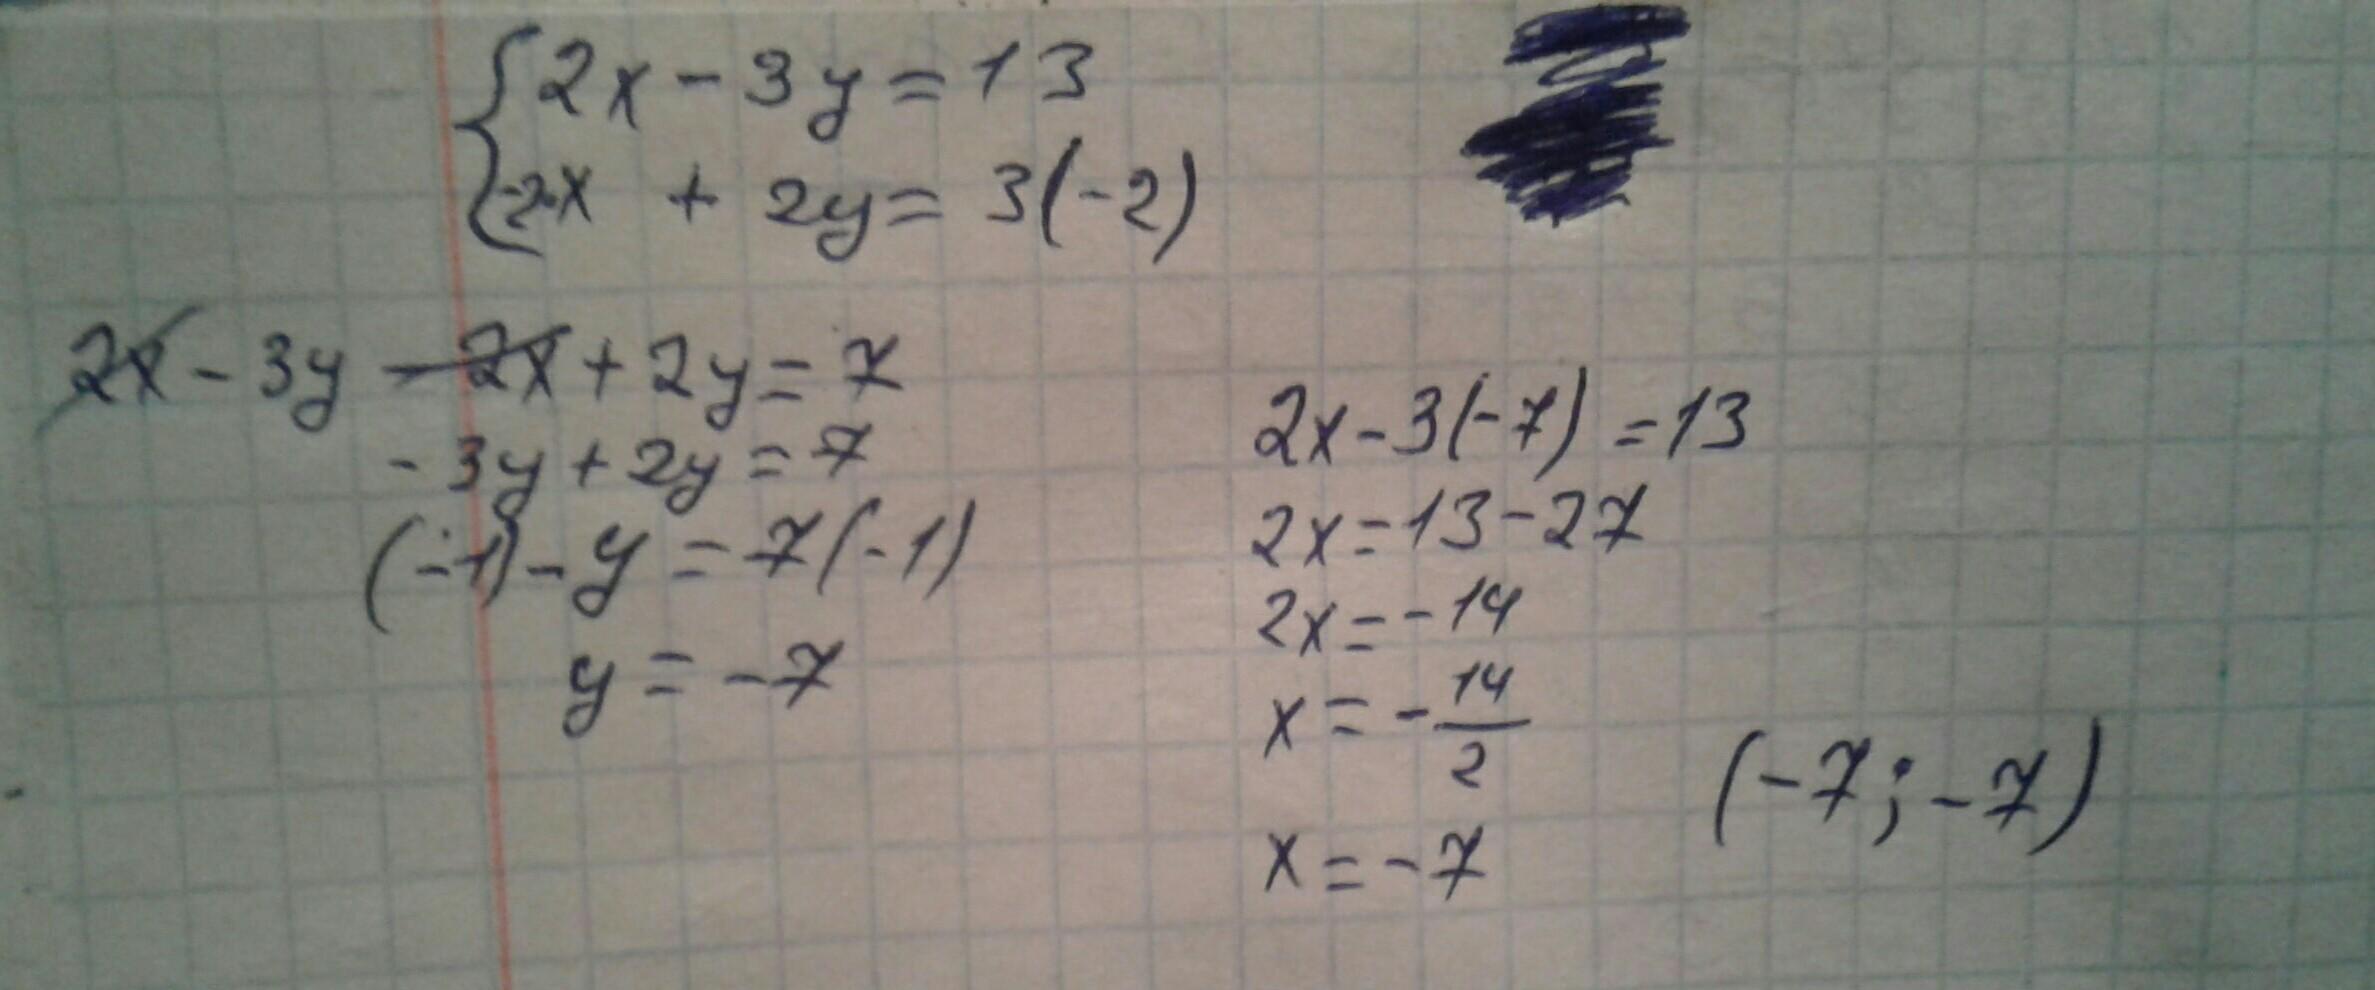 2x - 3y = 13
-2x + 2y = 3(-2)
2x - 3y - 2x + 2y = 7
-3y + 2y = 7
(-1) - y = 7(-1)
y = -7
2x - 3(-7) = 13
2x = 13 - 27
2x = -14
x = -14/2
x = -7
(-7; -7)